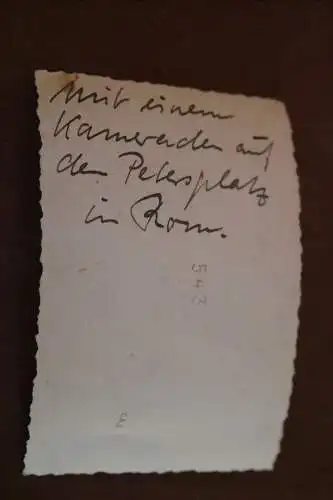 Mit einem
Kameraden auf
den Petersplatz
in Rom.
543
3